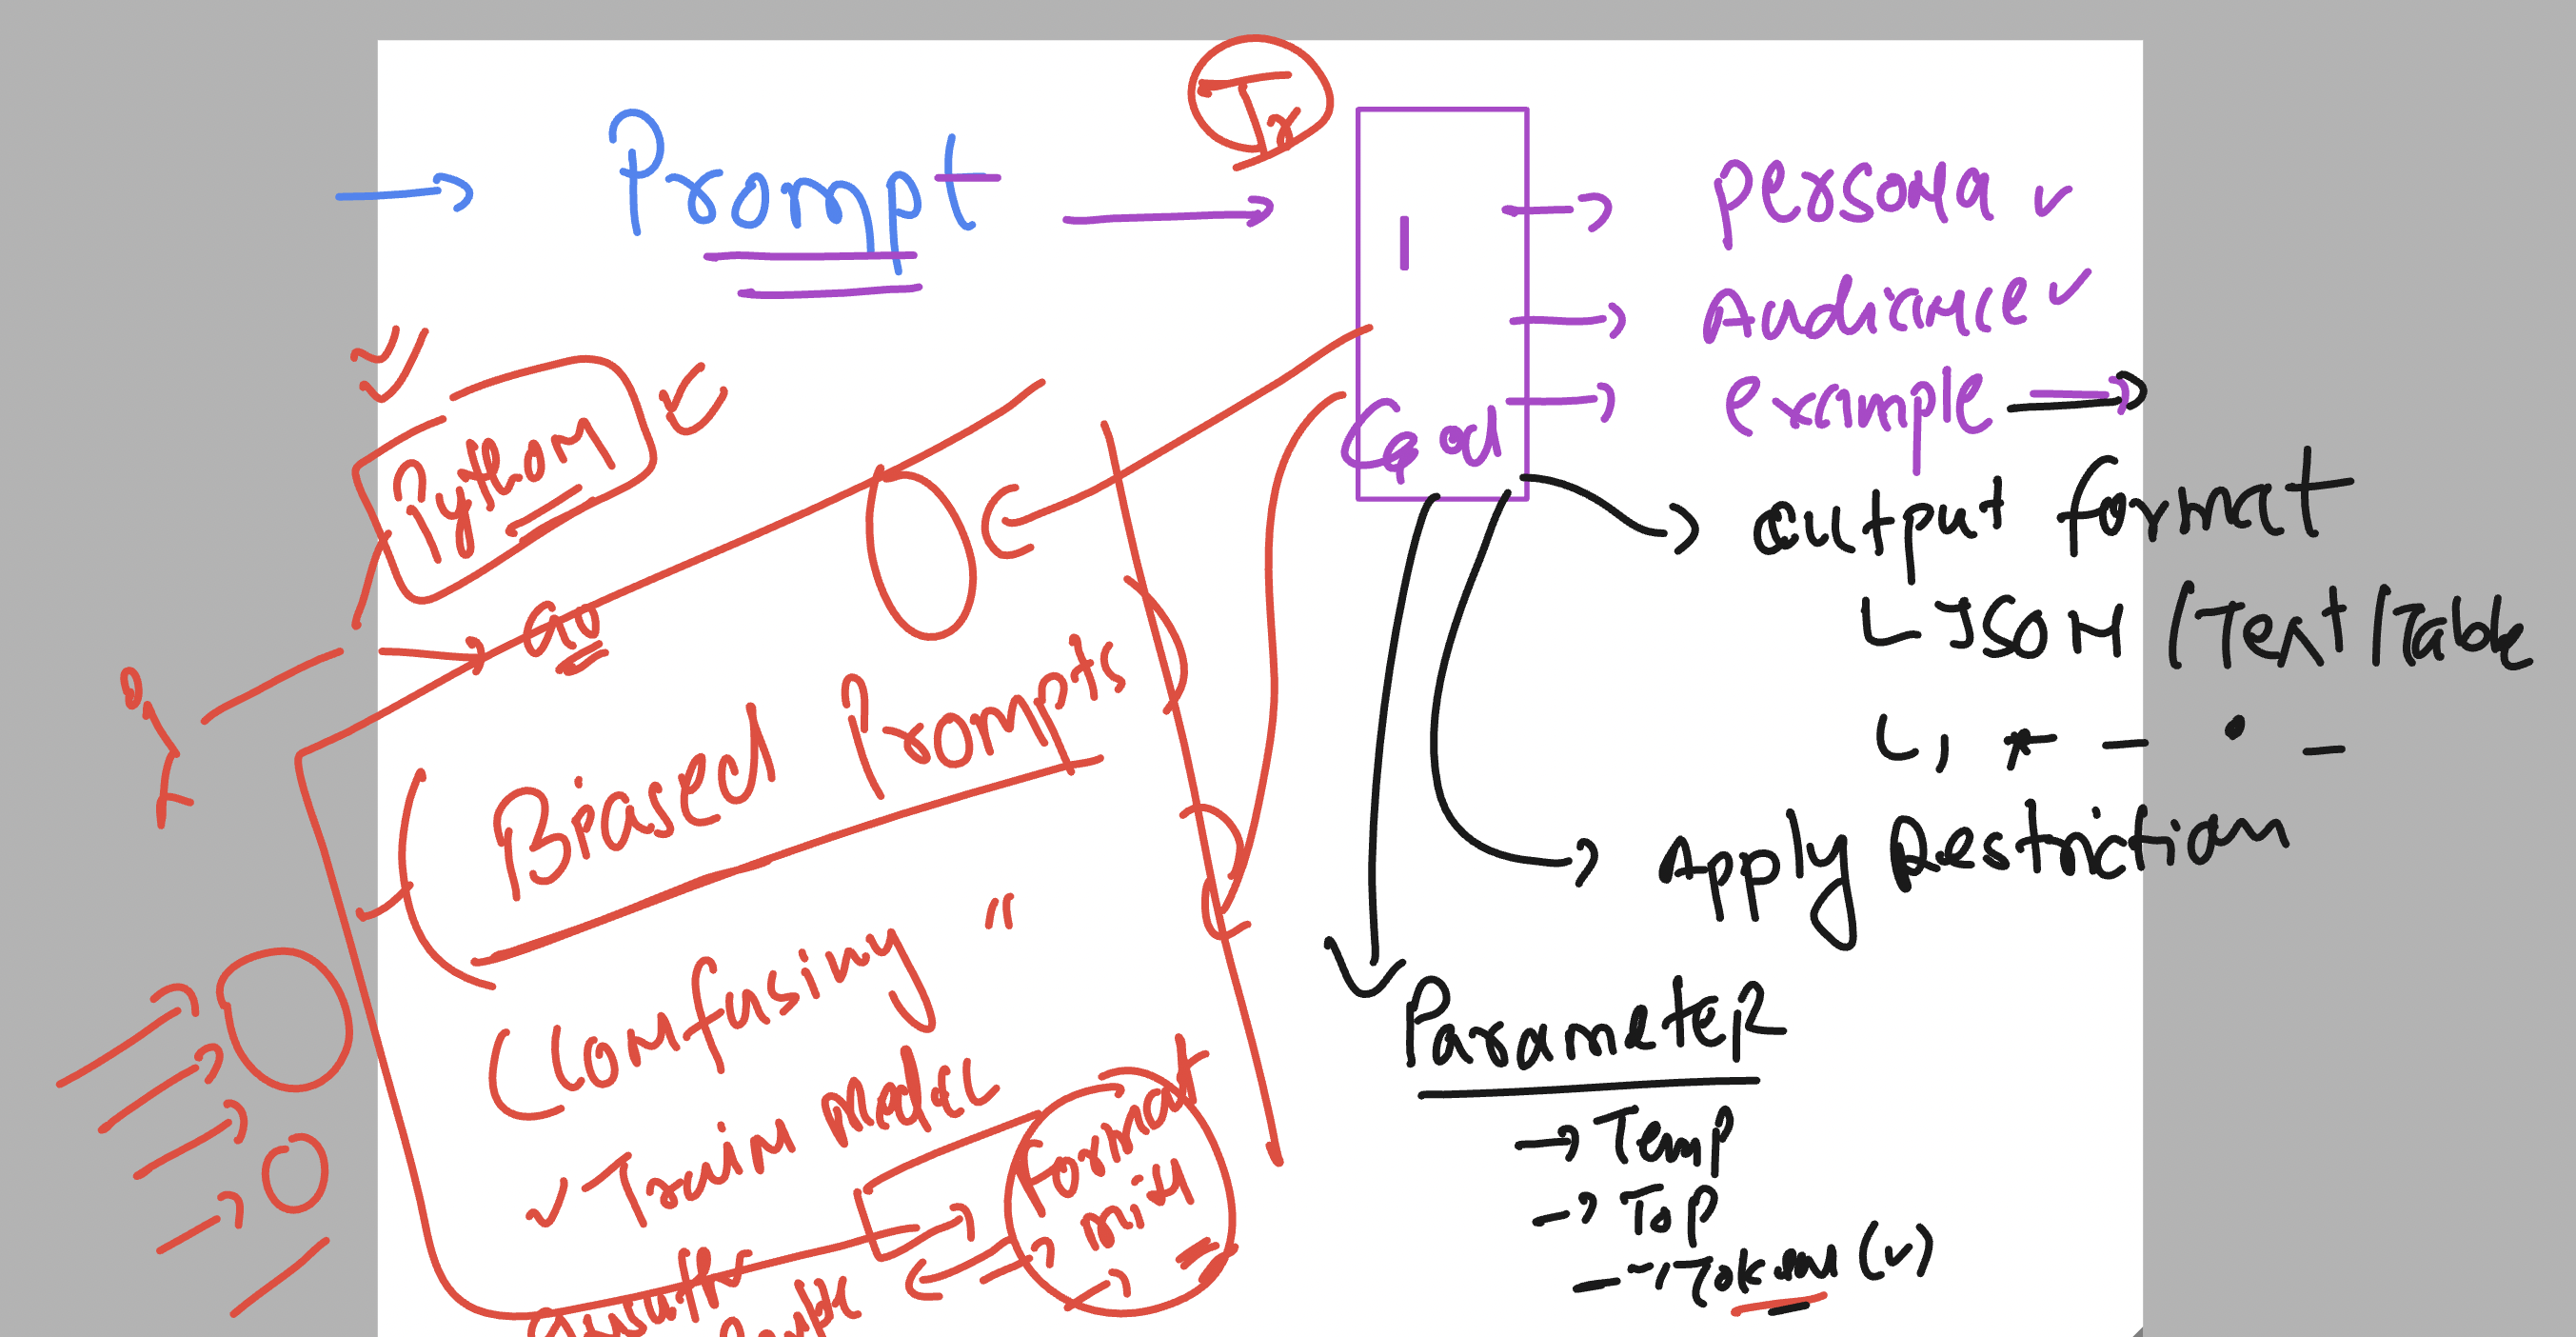 → Prompt →
Tr
persona ✓
Audience ✓
example →
output format
JSON / Text / Table
, * - • -
Apply Restriction
Parameter
→ Temp
→ Top
→ Token (✓)
Python
Go
Biased Prompts
Confusing "
✓ Train Model
Format